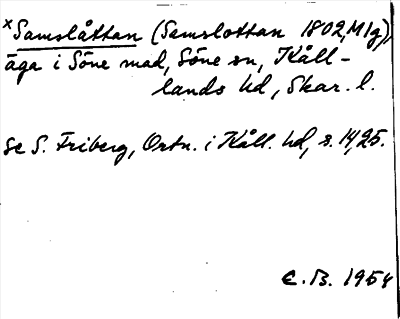 ×Samslåttan (Samslottan 1802, Mlg),
äga i Söne mad, Söne sn, Kåll-
lands hd, Skar. l.
Se S. Friberg, Ortn. i Kåll. hd, s. 14, 25.
C.B. 1954